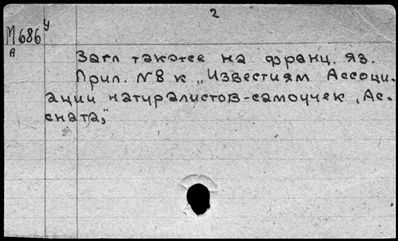 2
М686 у
А
Загл также на франц. яз.
Прил. №8 к „Известиям Ассоци-
ации натуралистов-самоучек „Ас-
сната”